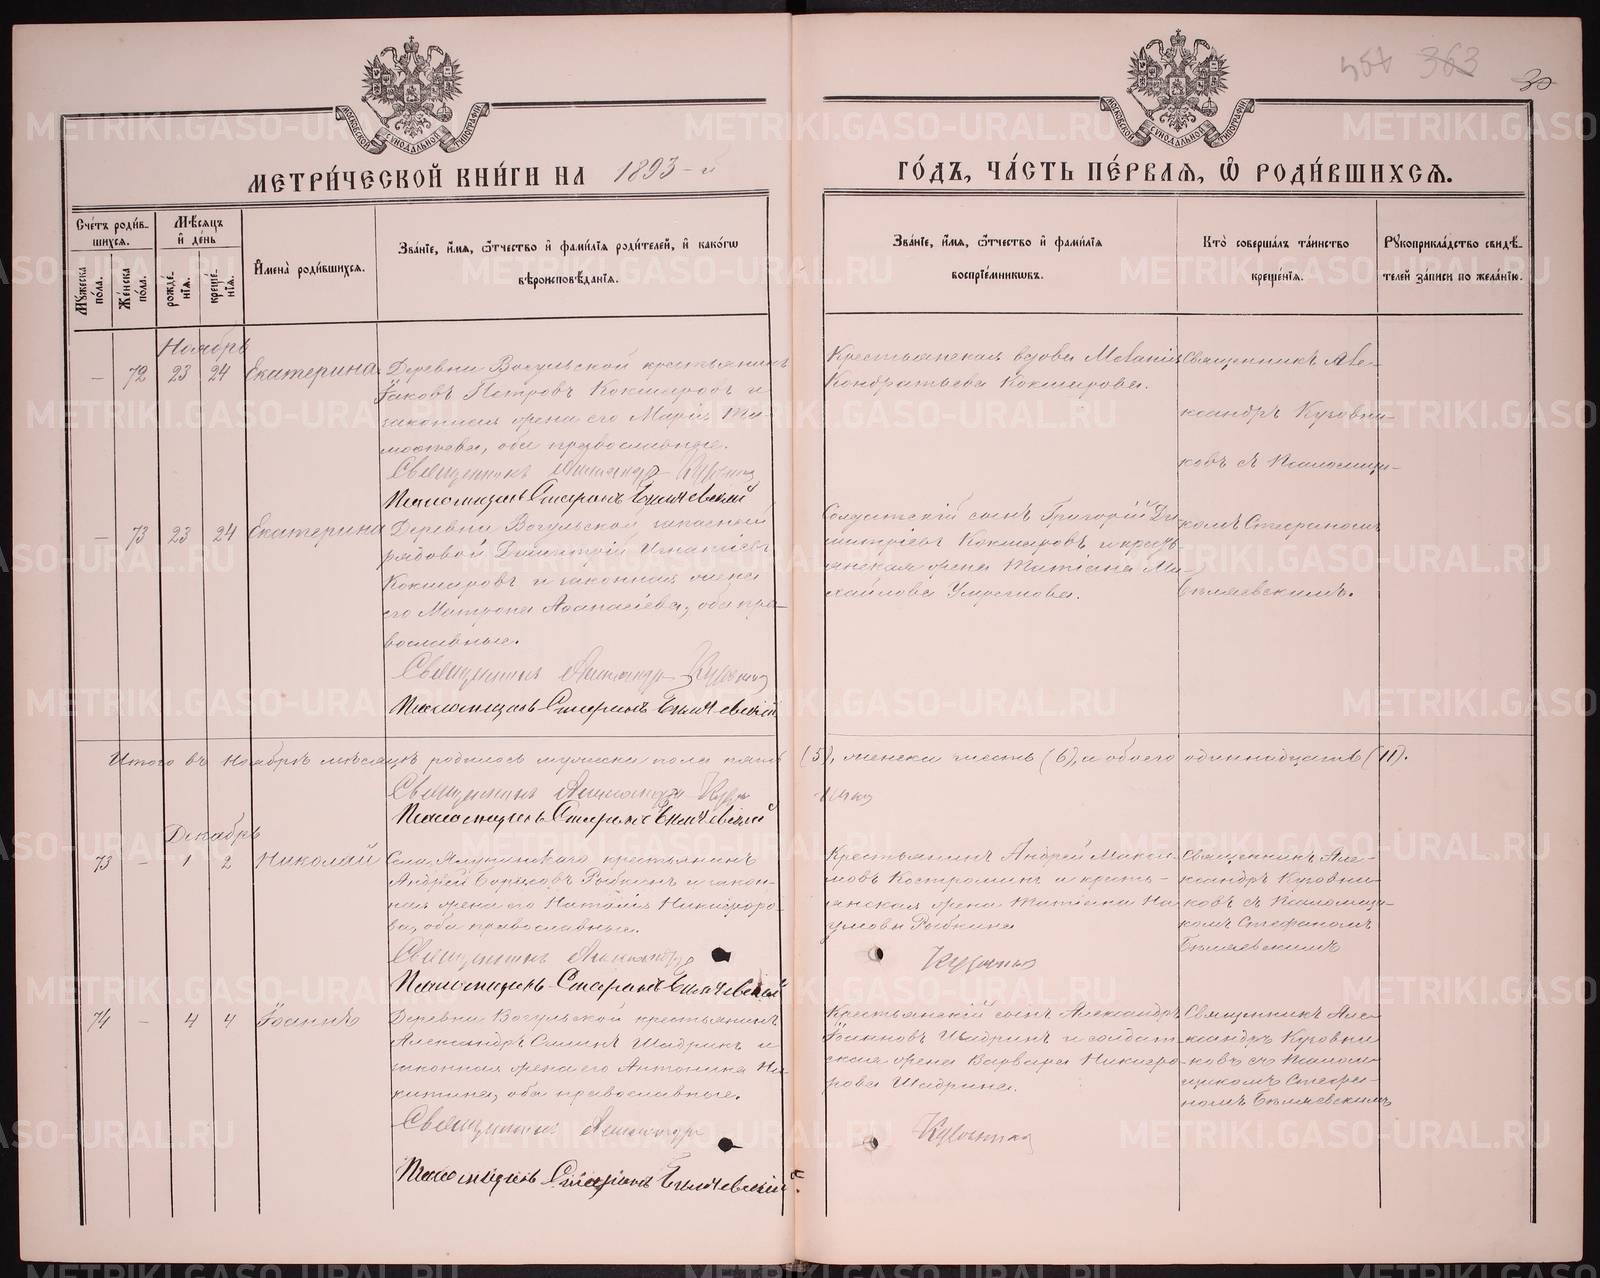 МОСКОВСКОЙ СѴНОДАЛЬНОЙ ТИПОГРАФІИ
МЕТРИ́ЧЕСКОЙ КНИ́ГИ НА 1893-й
Сче́тъ роди́в-
шихся.
Му́жеска по́ла.
Же́нска по́ла.
Мѣ́сяцъ и҆ де́нь
рожде́-
нїя.
креще́-
нїя.
И҆мена̀ роди́вшихся.
Зва́нїе, и҆́мя, ѻ҆́тчество и҆ фами́лїя роди́телей, и҆ како́гѡ
вѣроисповѣ́данїя.
Ноябрь
— 72 23 24 Екатерина
Деревни Вогульской крестьянинъ
Іаковъ Петровъ Кокшаровъ и
законная жена его Марія Ти-
моѳеева, оба православные.
Священникъ Александръ
Псаломщикъ Стефанъ Бѣляевскій
— 73 23 24 Екатерина
Деревни Вогульской запасный
рядовой Димитрій Игнатіевъ
Кокшаровъ и законная жена
его Матрона Аѳанасіева, оба пра-
вославные.
Священникъ Александръ
Псаломщикъ Стефанъ Бѣляевскій
Итого въ Ноябрѣ мѣсяцѣ родилось мужеска пола пять (5), женска шесть (6), и обоего одиннадцать (11).
Священникъ Александръ
Псаломщикъ Стефанъ Бѣляевскій
Декабрь
73 — 1 2 Николай
Села крестьянинъ
Андрей Рыбкинъ и закон-
ная жена его Наталія Никифоро-
ва, оба православные.
Священникъ Александръ
Псаломщикъ Стефанъ Бѣляевскій
74 — 4 4 Іоаннъ
Деревни Вогульской крестьянинъ
Александръ Шадринъ и
законная жена его Антонина Ни-
китина, оба православные.
Священникъ Александръ
Псаломщикъ Стефанъ Бѣляевскій
363
30
МОСКОВСКОЙ СѴНОДАЛЬНОЙ ТИПОГРАФІИ
ГО́ДЪ, ЧА́СТЬ ПЕ́РВАЯ, Ѽ РОДИ́ВШИХСЯ.
Зва́нїе, и҆́мя, ѻ҆́тчество и҆ фами́лїя
воспрїе́мниковъ.
Кто̀ соверша́лъ та́инство
креще́нїя.
Рꙋкоприкла́дство свидѣ́-
телей за́писи по жела́нїю.
Крестьянская вдова Меланія
Кондратьева Кокшарова.
Священникъ Але-
ксандръ Кузовни-
ковъ съ Псаломщи-
комъ Стефаномъ
Бѣляевскимъ.
Солдатскій сынъ Григорій Ди-
митріевъ Кокшаровъ и кресть-
янская жена Татіана Ми-
хайлова
Крестьянинъ Андрей Макси-
мовъ Костроминъ и кресть-
янская жена Татіана На-
умова Рыбкина
Священникъ Але-
ксандръ Кузовни-
ковъ съ Псаломщи-
комъ Стефаномъ
Бѣляевскимъ
Крестьянскій сынъ Александръ
Іоанновъ Шадринъ и солдат-
ская жена Варвара Никифо-
рова Шадрина.
Священникъ Але-
ксандръ Кузовни-
ковъ съ Псалом-
щикомъ Стефа-
номъ Бѣляевскимъ
METRIKI.GASO-URAL.RU